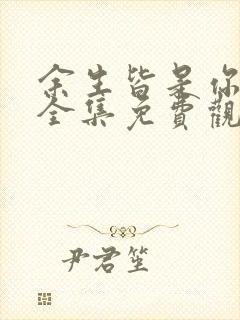 余生皆是你
全集免費觀
尹君笙